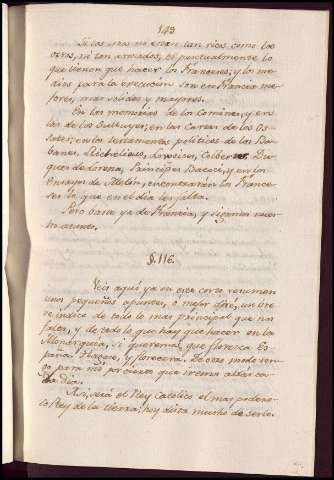 143
Si los unos no eran tan ricos como los
otros, ni tan armados, el puntualmente lo
que tienen que hacer los Franceses, y los me-
dios para la execucion son en Francia me-
jores, mas solidos y mayores.
En las memorias de la Comines, y en
las de los Sullyes, en las Cartas de los Os-
sates, en los testamentos politicos de los Du-
banes, Richelieus, Lovocies, Colberts, Du-
ques de Lorena, Principes Bacaci, y en los
Ensayos de Melón, encontrarán los France-
ses lo que en el dia les falta.
Pero baste ya de Francia, y sigamos nues-
tro asunto.
§. 116.
Veis aquí ya en este corto resumen
unos pequeños apuntes, o mejor diré, un bre-
ve indice de todo lo mas principal que nos
falta, y de todo lo que hay que hacer en la
Monarquía, si queremos que florezca Es-
paña. Hagase, y florecerá. De otro modo ten-
go para mi por cierto que iremos atrás ca-
da dia.
Asi, será el Rey Catolico el mas podero-
so Rey de la tierra; hoy dista mucho de serlo.